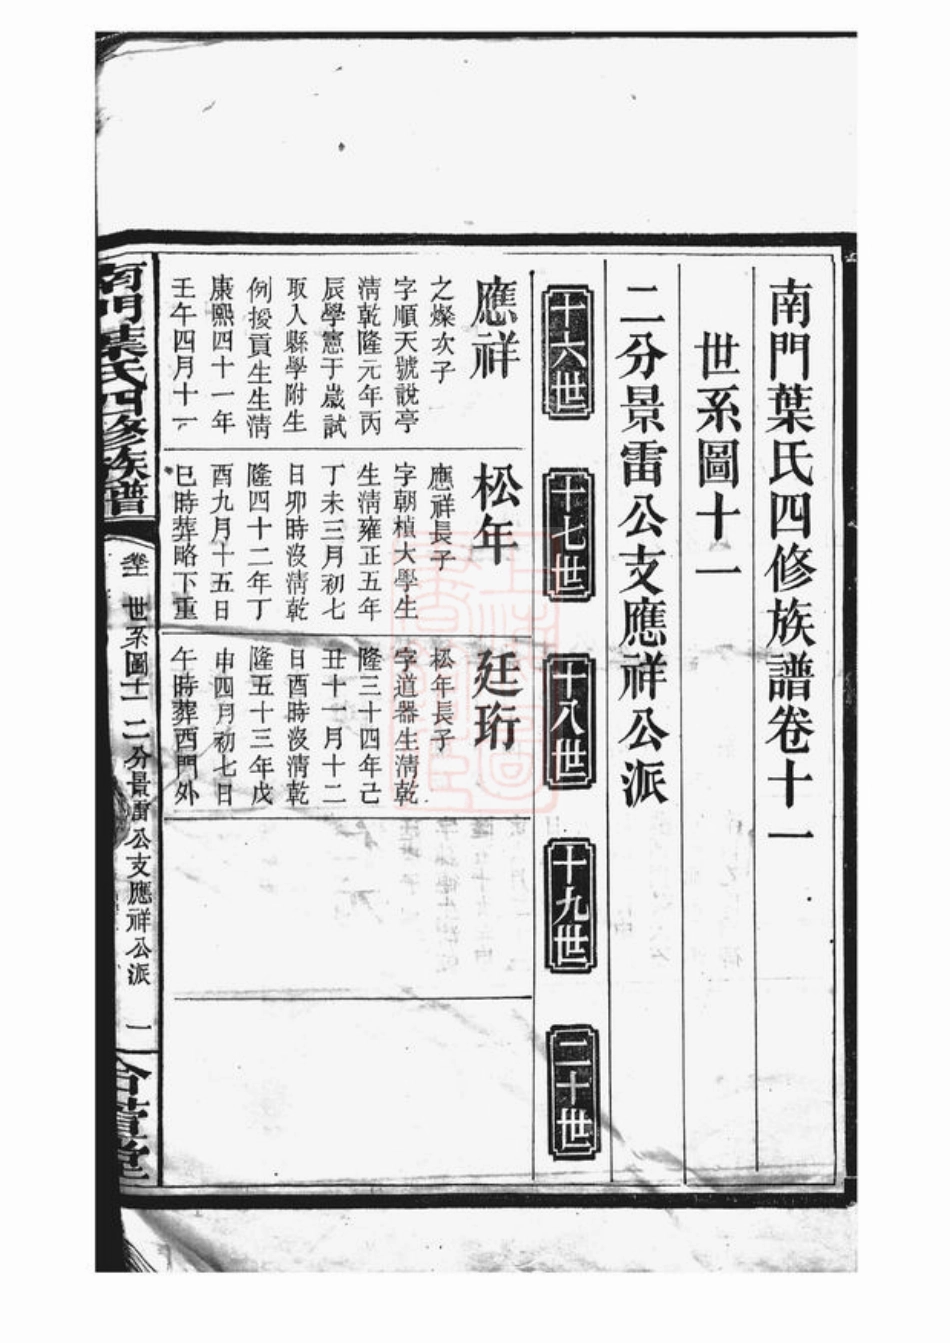 南門葉氏四修族譜卷十一
世系圖十一
二分景雷公支應祥公派
十六世
十七世
十八世
十九世
二十世
應祥
之燦次子
字順天號說亭
清乾隆元年丙
辰學憲于歲試
取入縣學附生
例授貢生生清
康熙四十一年
壬午四月十一
松年
應祥長子
字朝楨大學生
生清雍正五年
丁未三月初七
日卯時沒清乾
隆四十二年丁
酉九月十五日
巳時葬略下重
廷珩
松年長子
字道器生清乾
隆三十四年己
丑十一月十二
日酉時沒清乾
隆五十三年戊
申四月初七日
午時葬西門外
南門葉氏四修族譜
卷十一
世系圖十一
二分景雷公支應祥公派
一